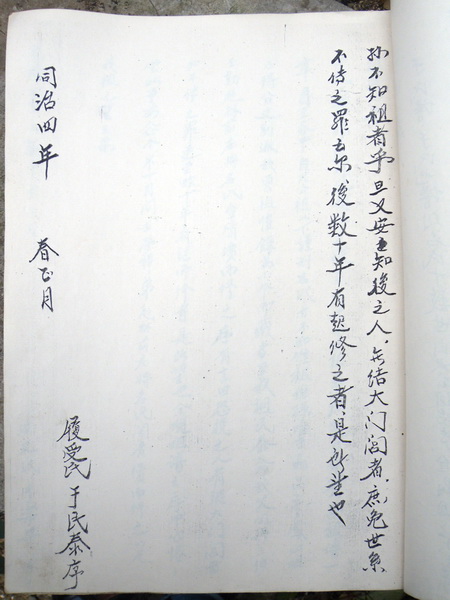 孙不知祖者乎旦又安知後之人.结大门闾者.庶免世系
不传之罪云尔.後数十年有起修之者.是所望也
同治四年 春正月
履受氏于民泰序